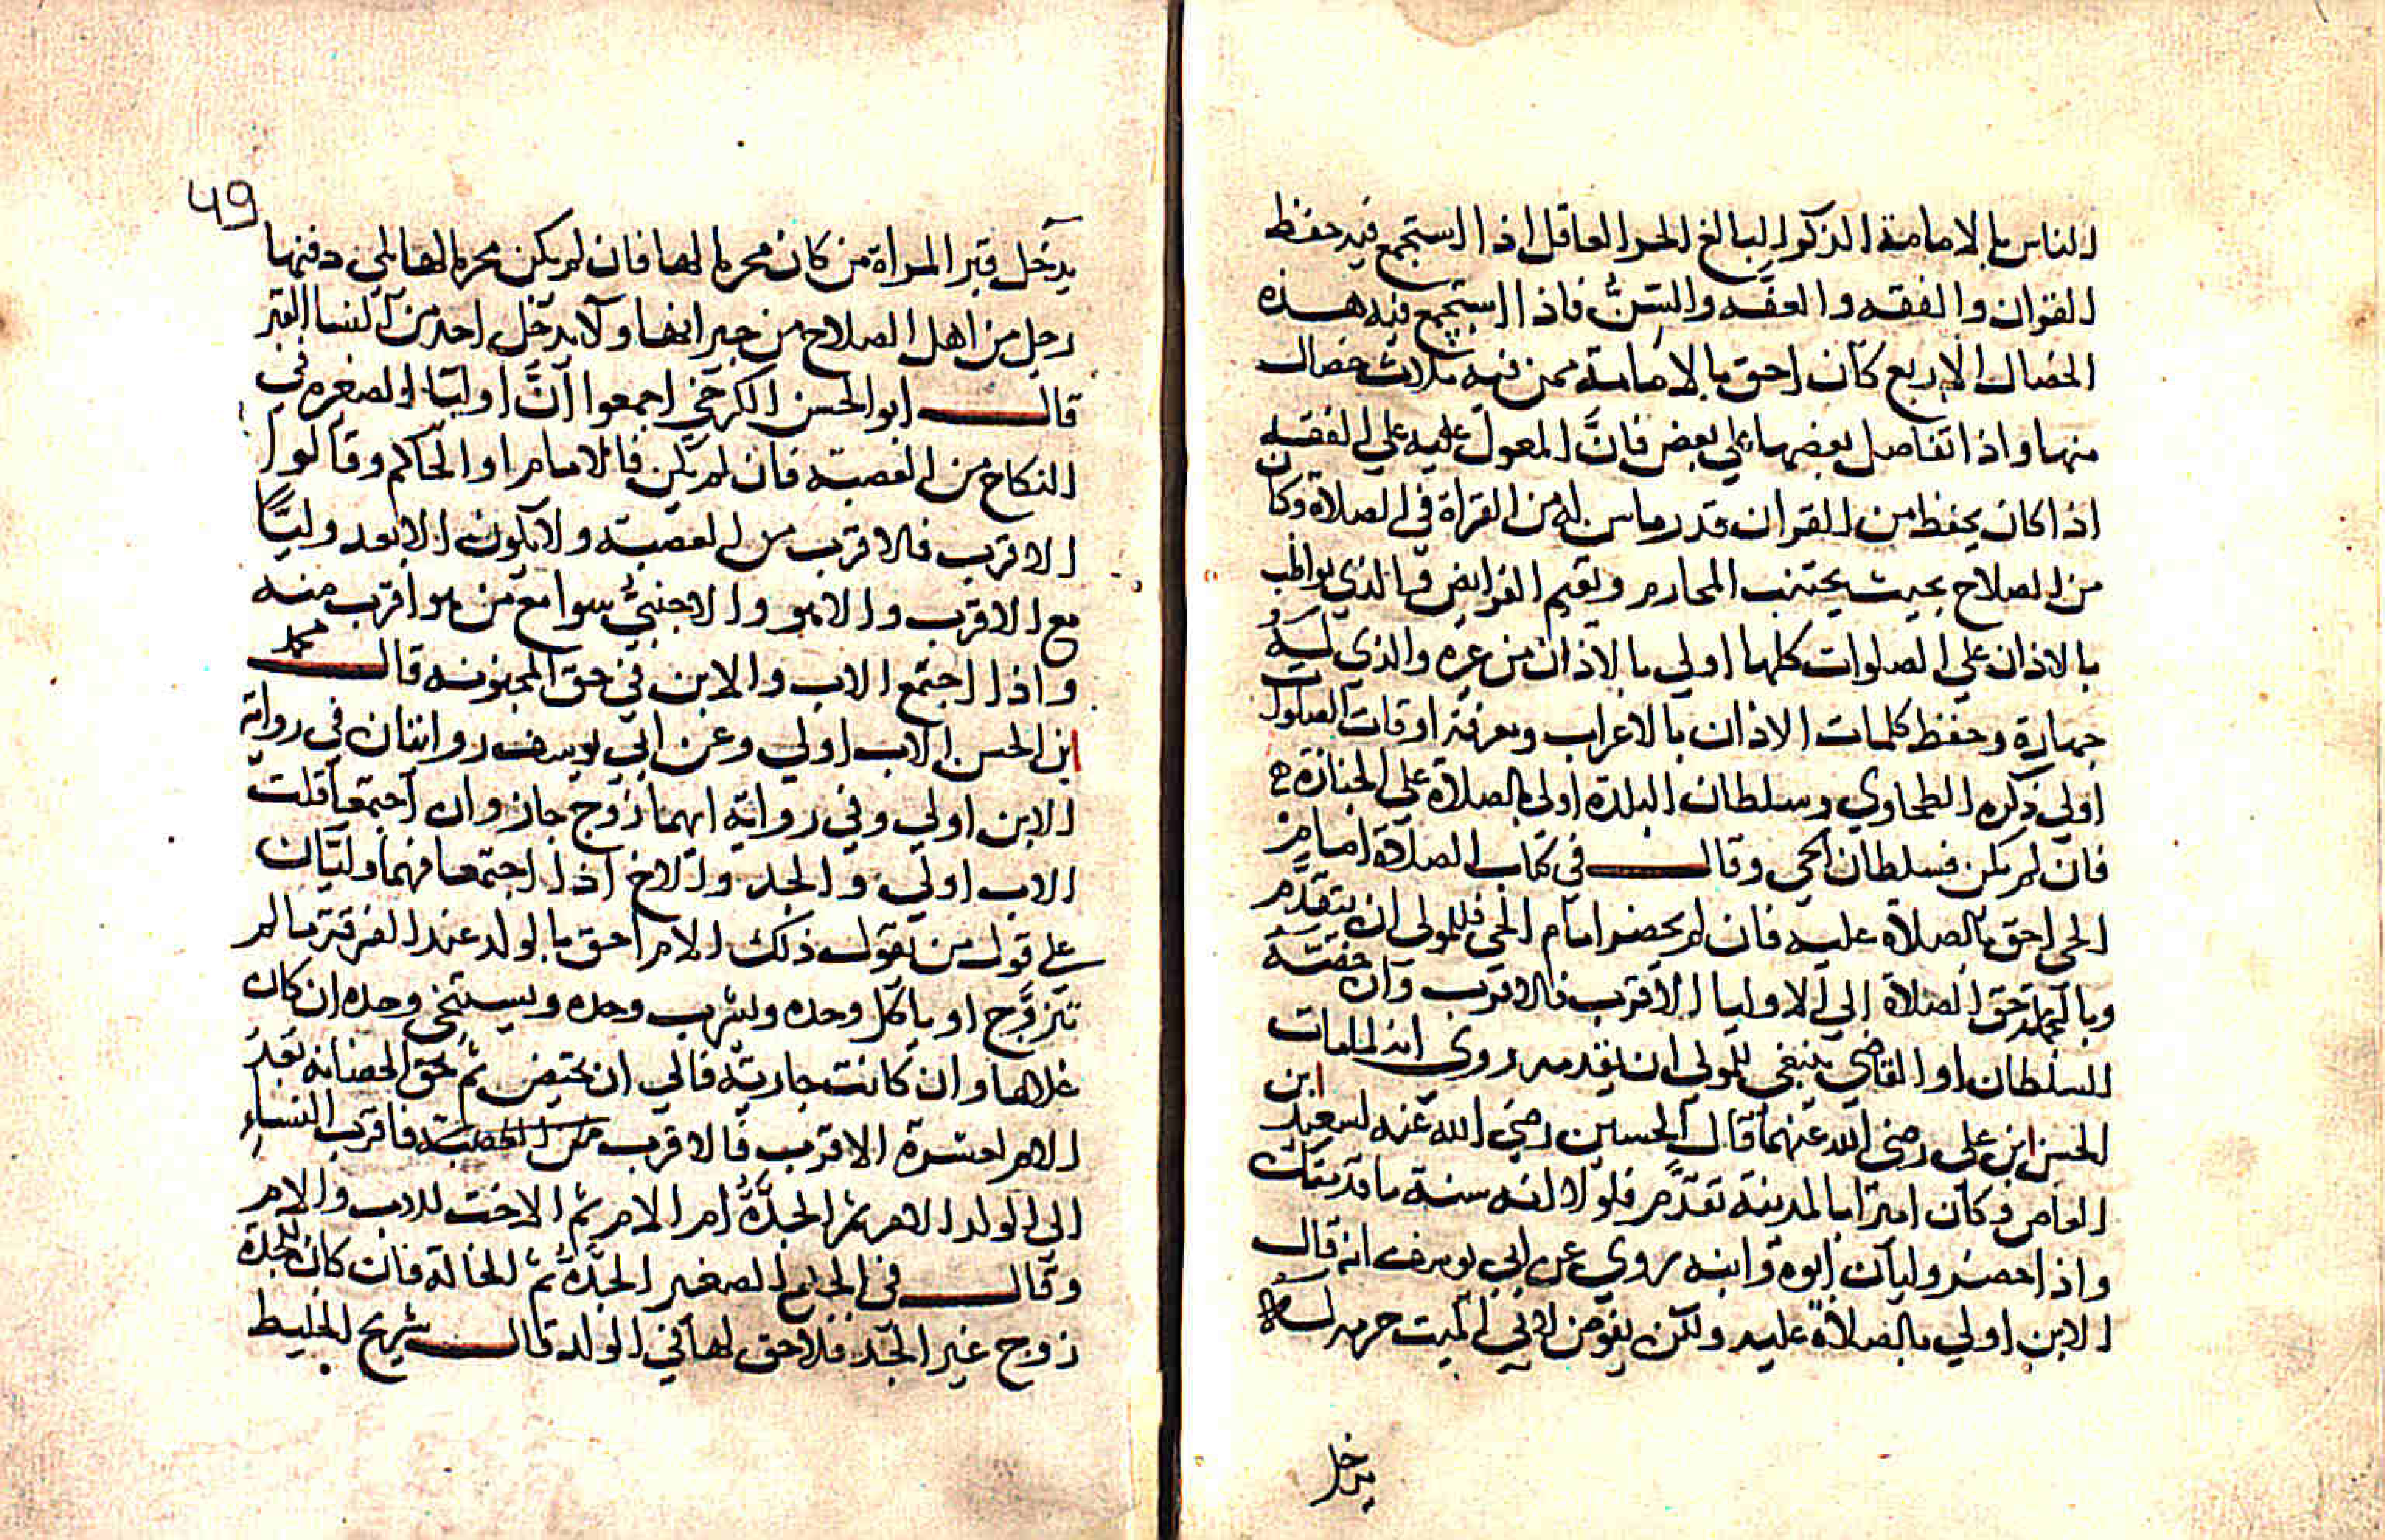 الناس بالامامة الذكر البالغ الحر العاقل اذا استجمع فيه حفظ
القران والفقه والعفه والسنّ فاذا استجمع فيه هذه
الخصال الاربع كان احق بالامامة ممن فيه ثلاث خصال
منها واذا تفاضل بعضها علي بعض فانّ المعول عليه علي الفقه
اذا كان يحفظ من القران قدر ما له من القراة في الصلاة وكان
من الصلاح بحيث يجتنب المحارم ويقيم الفرايض والذي يواظب
بالاذان علي الصلوات كلها اولي بالاذان من غيره والذي له
جهارة وحفظ كلمات الاذان بالاعراب ومعرفة اوقات الصلوات
اولي ذكره الطحاوي وسلطان البلدة اولي بالصلاة علي الجنازة
فان لم يكن فسلطان الحي وقال في كتاب الصلاة امام
الحي احق بالصلاة عليه فان لم يحضر امام الحي فللولي ان يتقدّم
وبالجملة حق الصلاة الي الاوليا الاقرب فالاقرب وان
السلطان او القاضي ينبغي للولي ان يقدمه روي انه لما مات
الحسن ابن علي رضي الله عنهما قال الحسين رضي الله عنه لسعيد ابن
العاص وكان اميرا بالمدينة تقدّم فلولا انه سنة ما قدمتك
واذا حضر وليان ابوه وابنه روي عن ابي يوسف انه قال
الابن اولي بالصلاة عليه ولكن يفوض الي ابي الميت حرمة له
يدخل
49
يدخل قبر المراة من كان محرما لها فان لم يكن محرما لها يلي دفنها
رجل من اهل الصلاح من جيرانها ولا يدخل احد من النسا القبر
قال ابو الحسن الكرخي اجمعوا انّ اوليا الصغيره في
النكاح من العصبة فان لم يكن فالامام او الحاكم وقالوا
الاقرب فالاقرب من العصبة ولا يكون الابعد وليًّا
مع الاقرب والاجنبيّ سوا مع من هو اقرب منه
واذا اجتمع الاب والابن في حق المجنونه قال محمد
ابن الحسن الاب اولي وعن ابي يوسف روايتان في رواية
الابن اولي وفي رواية ايهما زوج جاز وان اجتمعا قلت
الاب اولي والجد والاخ اذا اجتمعا فهما وليّان
علي قول من يقول ذلك الام احق بالولد عند الفرقة ما لم
تتزوّج او ياكل وحده ويشرب وحده ويستنجي وحده ان كان
غلاما وان كانت جارية فالي ان تحيض ثم حق الحضانة بعد
الام لعشرة الاقرب فالاقرب من العصبة فاقرب النساء
الي الولد الام ثم الجدّة ام الام ثم الاخت للاب والام
وقال في الجامع الصغير الجدّة ثم الخالة فان كان للجدة
زوج غير الجد فلا حق لها في الولد قال شريح الخليط